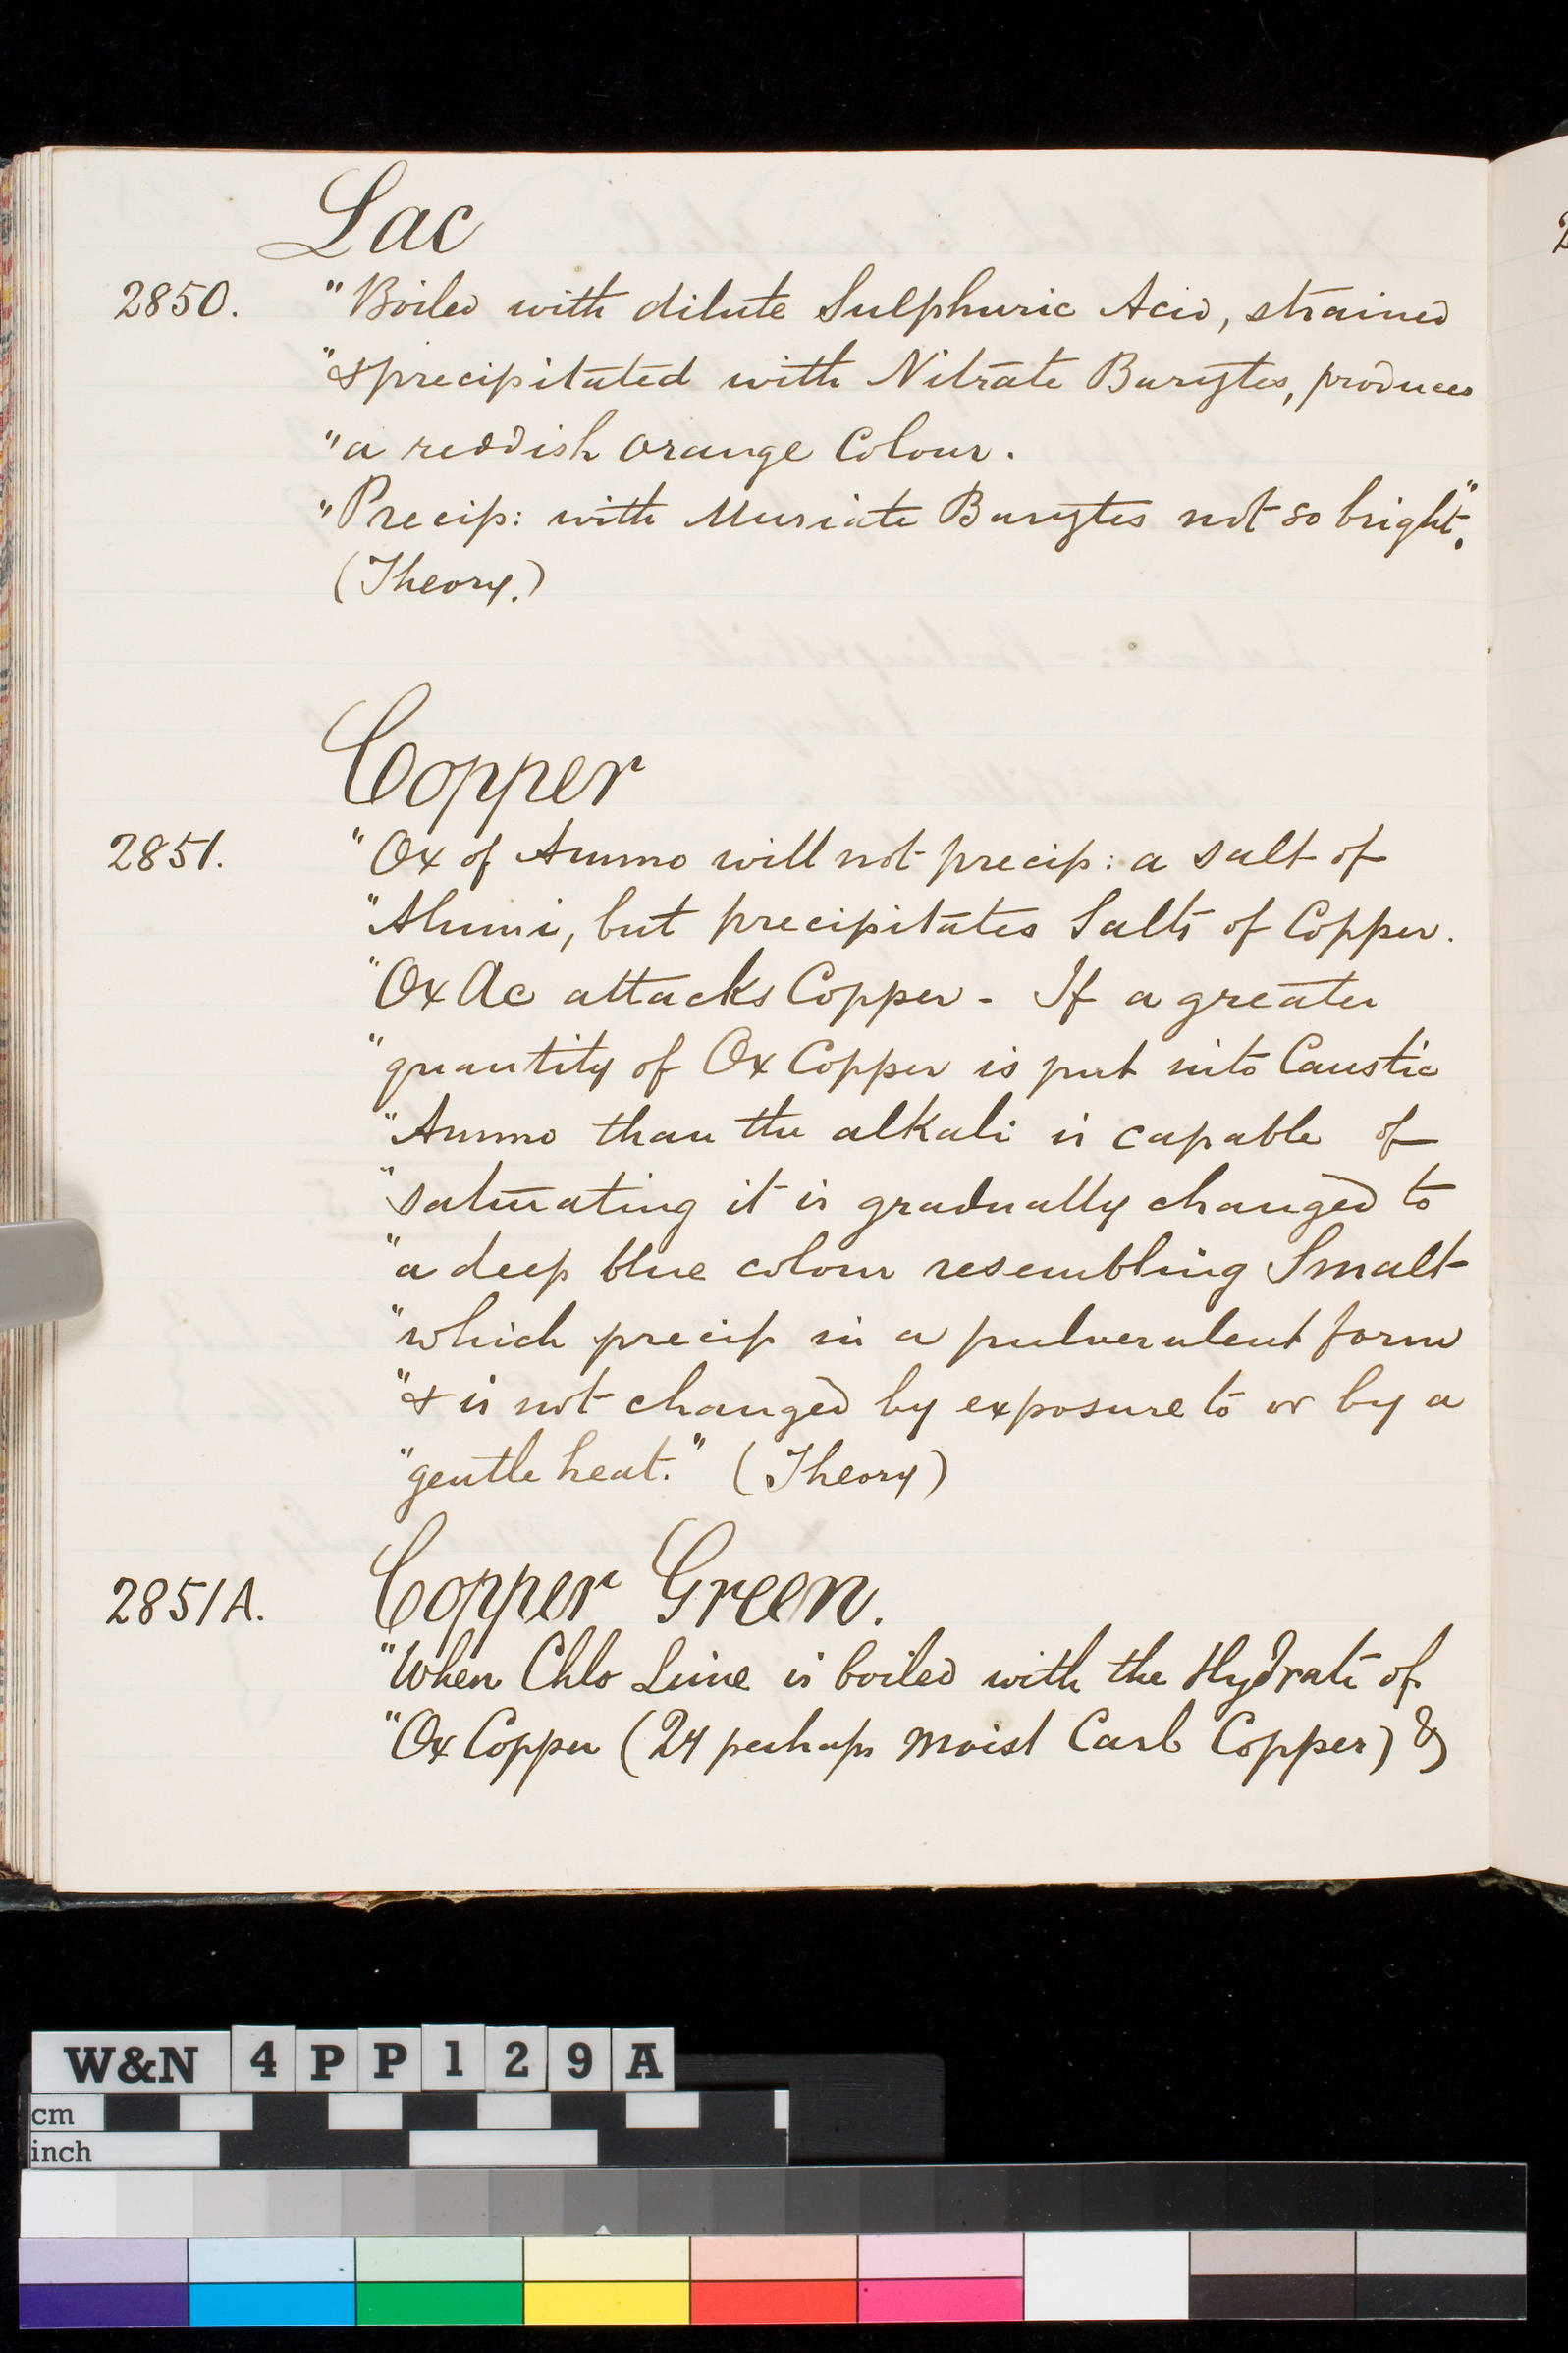 Lac
2850. "Boiled with dilute Sulphuric Acid, strained
"& precipitated with Nitrate Barytes, produces
"a reddish orange Colour.
"Precip: with Muriate Barytes not so bright".
(Theory.)
Copper
2851. "Ox of Ammo will not precip: a salt of
"Alumi, but precipitates Salts of Copper.
"Ox Ac attacks Copper - If a greater
"quantity of Ox Copper is put into Caustic
"Ammo than the alkali is capable of
"saturating it is gradually changed to
"a deep blue colour resembling Smalt
"which precip in a pulverulent form
"& is not changed by exposure to or by a
"gentle heat." (Theory)
2851A. Copper Green.
"When Chlo Lime is boiled with the Hydrate of
"Ox Copper (24 perhaps moist Carb Copper) &
W&N 4PP129A
cm
inch